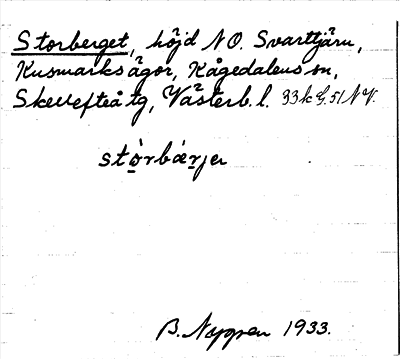 Storberget, höjd NO. Svarttjärn,
Kusmarks ägor, Kågedalens sn,
Skellefteå tg, Västerb. l. 33k G. 51 NV.
stòrbǽrje
B. Nygren 1933.